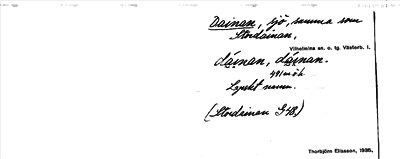 Dainan, sjö, samma som
Stordainan,
Vilhelmina sn. o. tg. Västerb. l.
dáinan, dáinan.
491 m ö h.
Lapskt namn.
(Stordainan G4B.)
Thorbjörn Eliasson, 1935.